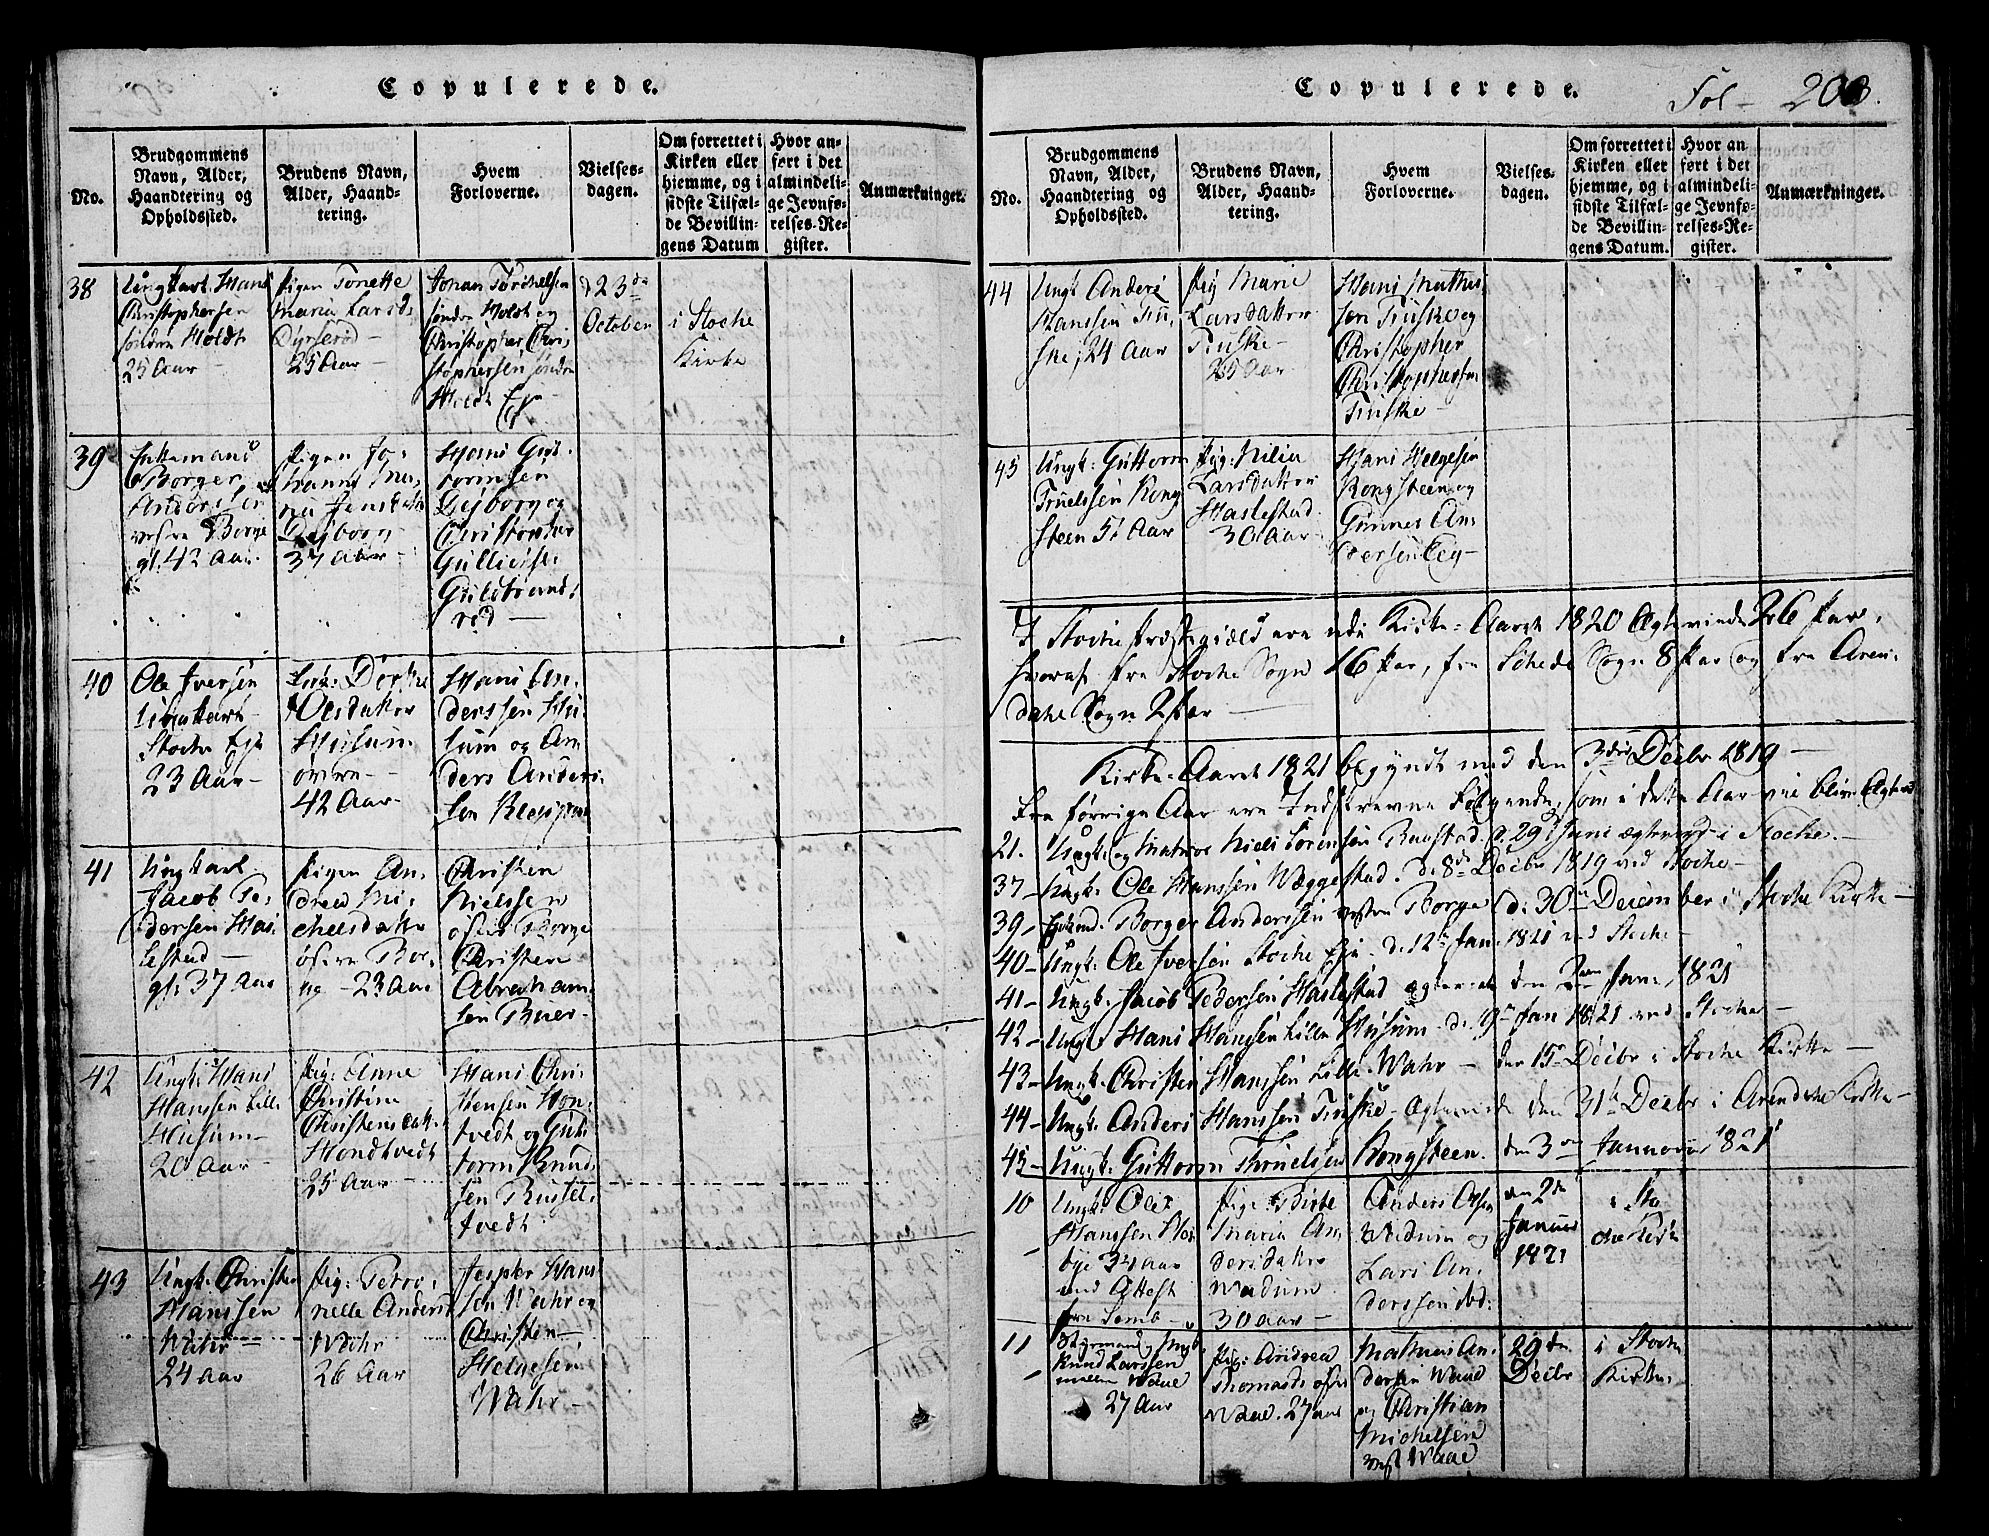 Copulerede.
No.
Brudgommens
Navn, Alder,
Haandtering og
Opholdssted.
Brudens Navn,
Alder, Haand-
tering.
Hvem
Forloverne.
Vielses-
dagen.
Om forrettet i
Kirken eller
hjemme, og i
sidste Tilfæl-
de Bevillin-
gens Datum
Hvor an-
ført i det
almindeli-
ge Jevnfø-
relses-Re-
gister.
Anmærkninger.
38
Ungkarl Hans
Christophersen
søndre Holdt
25 Aar
Pigen Tonette
Maria Larsd:
Dyrserød
25 Aar
Johan
søndre Holdt og
Christopher Chri-
stophersen søndre
Holdt
d 23de
October
i Stocke
Kirke
39
Enkemand
Borger
Anderssen
vestre Borge
gl. 42 Aar
Pigen Jo-
hanne
Dejborg
37 Aar
Hans Gut-
tormsen
Dejborg og
Christopher
Gullichs.
Guldbrands-
rød
40
Ole Iversen
Ungkarl
Stocke Eje
23 Aar
Enke: Dorthe
Olesdatter
Husum
øvre
42 Aar
Hans An-
derssen Hu-
sum og An-
ders Anders-
sen
41
Ungkarl
Jacob Pe-
dersen Has-
lestad
gl: 37 Aar
Pigen An-
drea Mi-
chelsdatter
østre Bor-
ge 23 Aar
Christen
Nielssen
østre Borge
Christen
Abraham-
sen Buer
42
Ungk: Hans
Hanssen Lille
Husum
20 Aar
Pig: Anne
Christine
Christensdatt:
Hondtvedt
25 Aar
Hans Chri-
stensen Hon-
tvedt og Gut-
torm Knud-
sen Russel-
tvedt
43
Ungk: Christen
Hanssen
Wahr
24 Aar
Pig: Petro-
nelle Andersd
Wahr
26 Aar
Jesper Hans-
sen Wahr og
Christen
Helgesen
Wahr
Copulerede.
Fol 203.
No.
Brudgommens
Navn, Alder,
Haandtering og
Opholdssted.
Brudens Navn,
Alder, Haand-
tering.
Hvem
Forloverne.
Vielses-
dagen.
Om forrettet i
Kirken eller
hjemme, og i
sidste Tilfæl-
de Bevillin-
gens Datum.
Hvor an
ført i det
almindeli-
ge Jevnfø-
relses-Re-
gister.
Anmærkninger.
44
Ungk Anders
Hanssen Tru-
ske, 24 Aar
Pig Marie
Larsdatter
Truske
25 Aar
Hans Mathis
sen Truske og
Christopher
Christophersen
Truske
45
Ungk: Guttorm
Truelssen Kong
steen 51 Aar
Pig: Nilia
Larsdatter
Haslestad
30 Aar
Hans Helgesen
Kongsteen og
Gunner An-
dersen Eeg
I Stocke Præstegield ere udi Kirke-Aaret 1820 Ægteviede 26 Par,
hvoraf fra Stocke Sogn 16 Par, fra Schede Sogn 8 Par og fra Aren-
dahe Sogn 2 Par
Kirke-Aaret 1821 begyndt med den 3die Decbr 1819
Fra forrige Aar ere Indskrevne Følgende, som i dette Aar
21. Ungk: og Matros Niels Sørensen d. 29 Juni ægteviet i Stocke.
37 Ungk: Ole Hanssen Wæggestad. d. 8de Decbr 1819 ved Stocke
39 Enkmd. Borger Anderssen vestre Borge d: 30te December i Stocke Kirke
40 Ungk: Ole Iversen Stocke Eje d. 12te Jan. 1821 ved Stocke
41 Ungk. Jacob Pedersen Haslestad ægteviet den 2den Jan. 1821
42 Ungk: Hans Hanssen Lille Husum d. 9de Jan 1821 ved Stocke
43 Ungk. Christen Hanssen Lille Wahr den 15de Decbr i Stocke Kirke
44 Ungk. Anders Hanssen Truske ægteviede den 31te Decbr i Arendahe Kirke
45 Ungk: Guttorm Thruelssen Kongsteen. den 3die Januari 1821
10
Ungk: Oles
Hanssen
bye 34 Aar
med Attest
fra Semb
Pige Birte
Maria An-
dersdatter
Wadum
30 Aar
Anders Olsen
Wadum og
Lars An-
derssen ibd:
den 2de
Januar
1821
i Sto
cke Kirk
11
Styrmand, Ungk
Knud Larssen
mellem Waae
27 Aar
Pig: Andrea
Thomasd: østre
Waae. 27 Aar
Mathias An-
dersen Waae
og Christian
Michelsen
vest Waae
29de
Decbr
i Stocke
Kirke